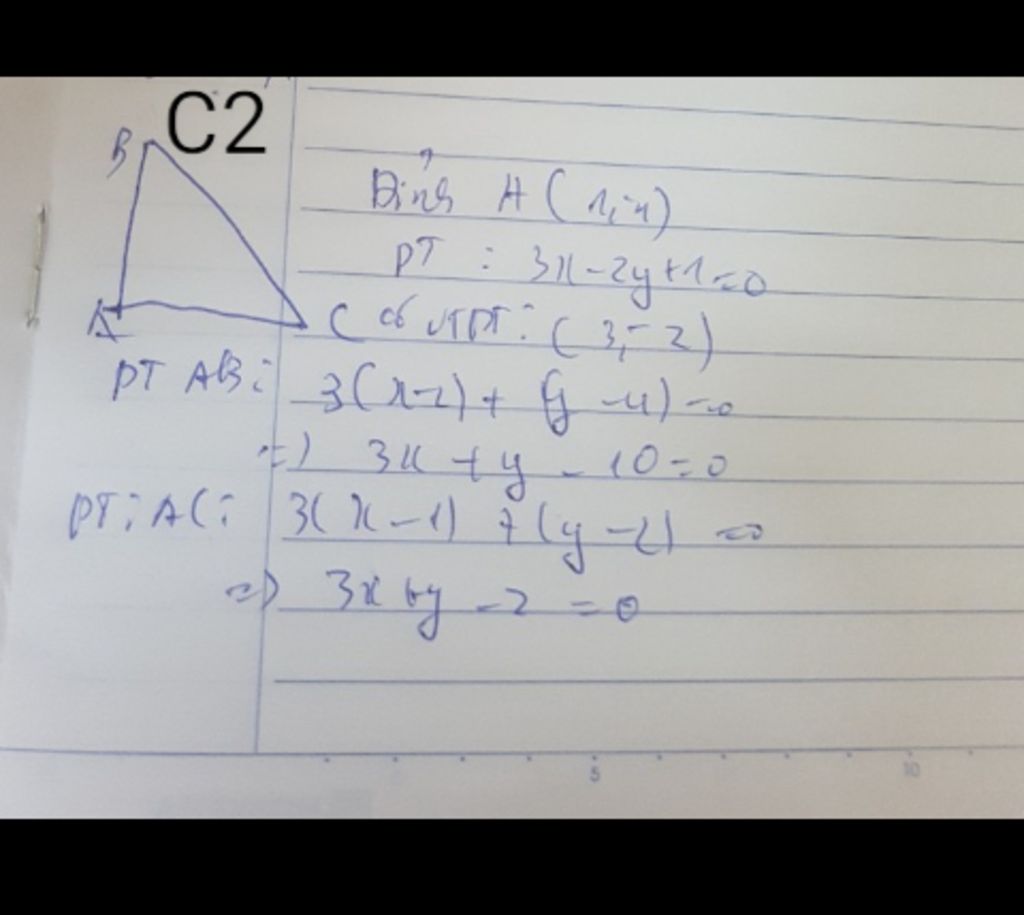 C2
B
Đỉnh A (1,-4)
PT : 3x-2y+1=0
A
C có VTPT: (3,-2)
PT AB: 3(x-2)+(y-4)=0
=) 3x+y-10=0
PT: AC: 3(x-1)+(y-2)=0
=) 3x+y-2=0
5
10